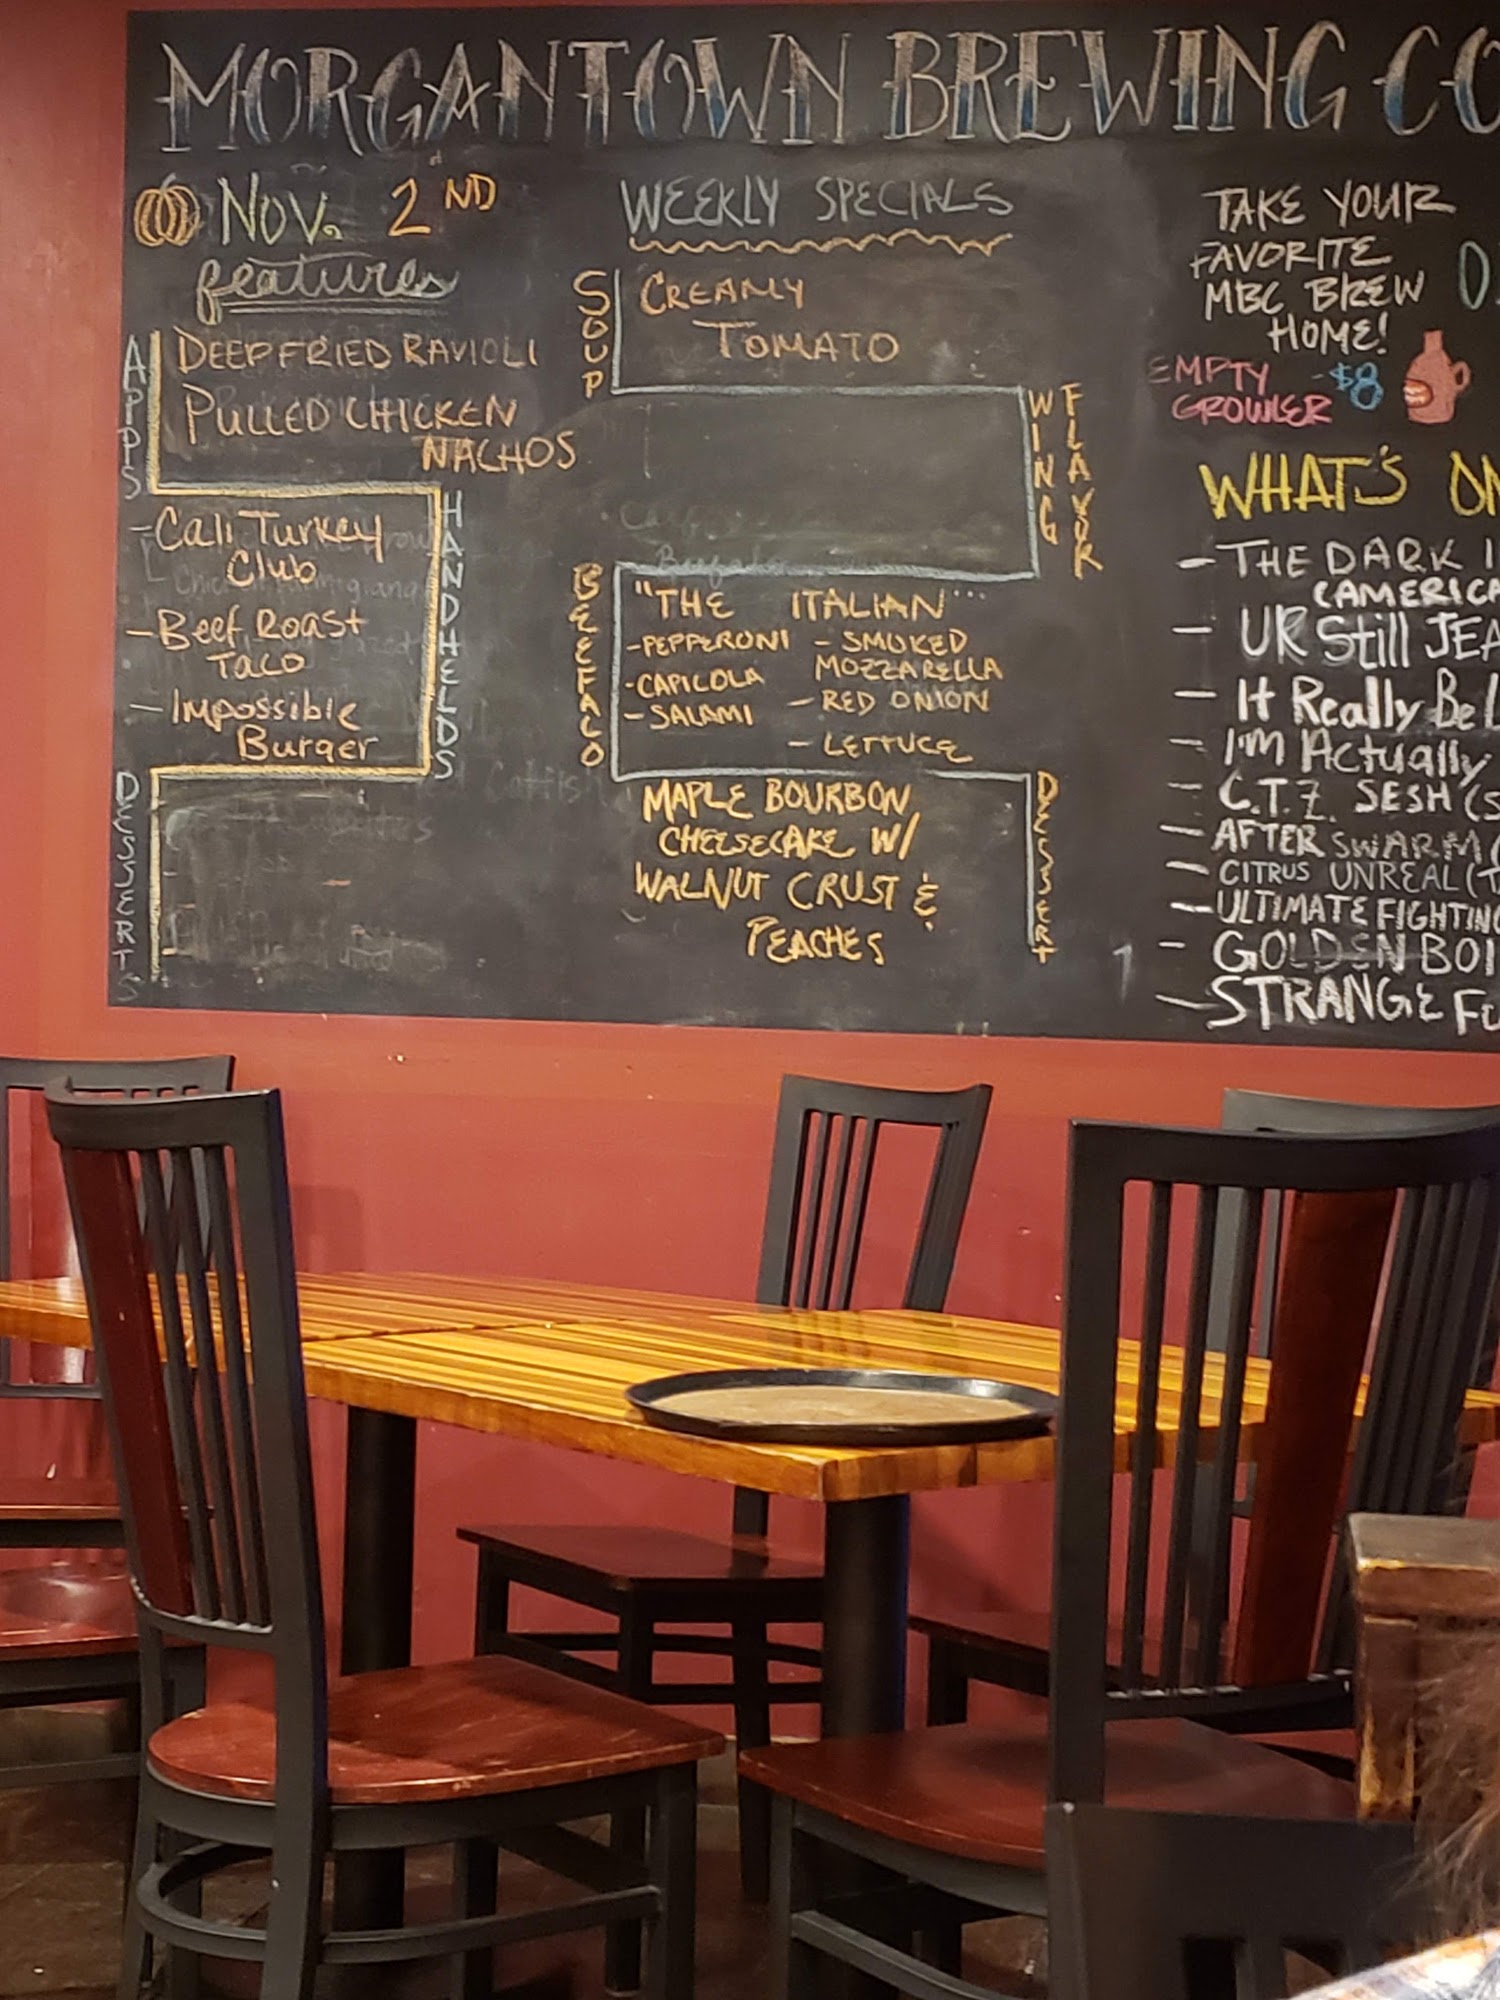 MORGANTOWN BREWING CO
NOV. 2ND
features
APPS
DEEP FRIED RAVIOLI
PULLED CHICKEN
NACHOS
HANDHELDS
- Cali Turkey
Club
- Beef Roast
Taco
- Impossible
Burger
DESSERTS
WEEKLY SPECIALS
SOUP
CREAMY
TOMATO
WING
FLAVOR
BEEFALO
"THE ITALIAN"
- PEPPERONI
- CAPICOLA
- SALAMI
- SMOKED
MOZZARELLA
- RED ONION
- LETTUCE
DESSERT
MAPLE BOURBON
CHEESECAKE W/
WALNUT CRUST &
PEACHES
TAKE YOUR
FAVORITE
MBC BREW
HOME!
EMPTY - $8
GROWLER
WHAT'S ON
- THE DARK
(AMERICA
- UR Still JEA
- It Really Be
- I'M Actually
- C.T.Z. SESH (S
- AFTER SWARM (
- CITRUS UNREAL (
- ULTIMATE FIGHTING
- GOLDEN BOI
- STRANGE